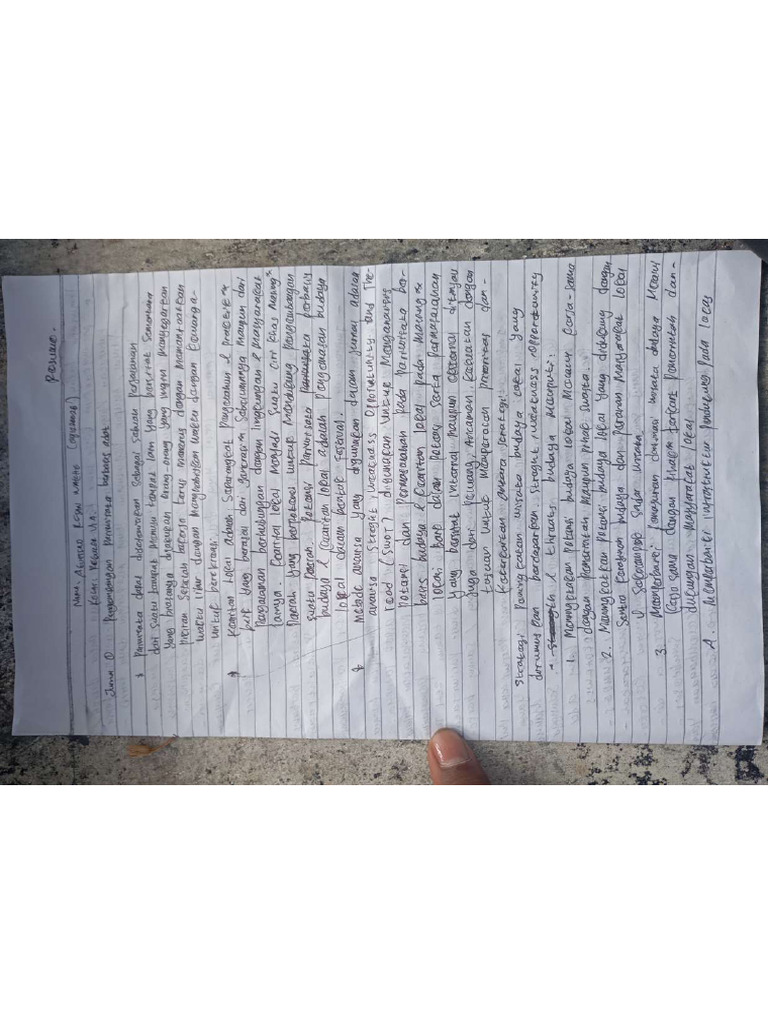 Resume.
Nama:
Kelas: Reguler
Jurnal ① Pengembangan Pariwisata berbasis adat
Pariwisata dapat didefinisikan sebagai suatu Perjalanan
dari suatu tempat menuju tempat lain yang bersifat sementara
yang biasanya dilakukan orang-orang yang ingin menyegarkan
pikiran setelah bekerja terus menerus dengan memanfaatkan
waktu libur dengan menghabiskan waktu dengan keluarga-
untuk berekreasi.
* Kearifan lokal adalah Seperangkat Pengetahuan & praktek
baik yang berasal dari generasi sebelumnya maupun dari
Pengalaman berhubungan dengan lingkungan & masyarakat
lainya. Kearifan lokal Menjadi suatu ciri khas masing"
Daerah yang berpotensi untuk Mendukung Pengembangan
suatu daerah. Potensi Pariwisata berbasis
budaya & kearifan lokal adalah pengemasan budaya
lokal dalam bentuk festival.
* Metode analisis yang digunakan dalam jurnal adalah
analisis Streght, weakness Opportunity, and The-
read (SWOT) digunakan untuk Menganalisis
Potensi dan Permasalahan pada Pariwisata ber-
basis budaya & kearifan lokal pada masing"
lokasi baik dalam Potensi serta Permasalahan
yang bersifat internal maupun eksternal ditinjau
juga dari peluang, Ancaman, Kekuatan dengan
tujuan untuk memperoleh prioritas dan-
keterkaitan antara strategi.
Strategi Peningkatan wisata budaya lokal yang
dirumuskan berdasarkan Streght, weakness opportunity
& Threats budaya meliputi:
1. Meningkatkan Potensi budaya lokal Melalui Kerja-sama
dengan pemerintah Maupun pihak swasta.
2. Meningkatkan Potensi budaya lokal yang didukung dengan
Sentra kerajinan budaya dan Peranan Masyarakat lokal
& kelompok sadar wisata
3. Memperbaiki Pemasaran destinasi wisata budaya Melalui
Kerja sama dengan pihak terkait Pemerintah dan-
dukungan masyarakat lokal
4. Memperbaiki infrastruktur pendukung pada lokasi